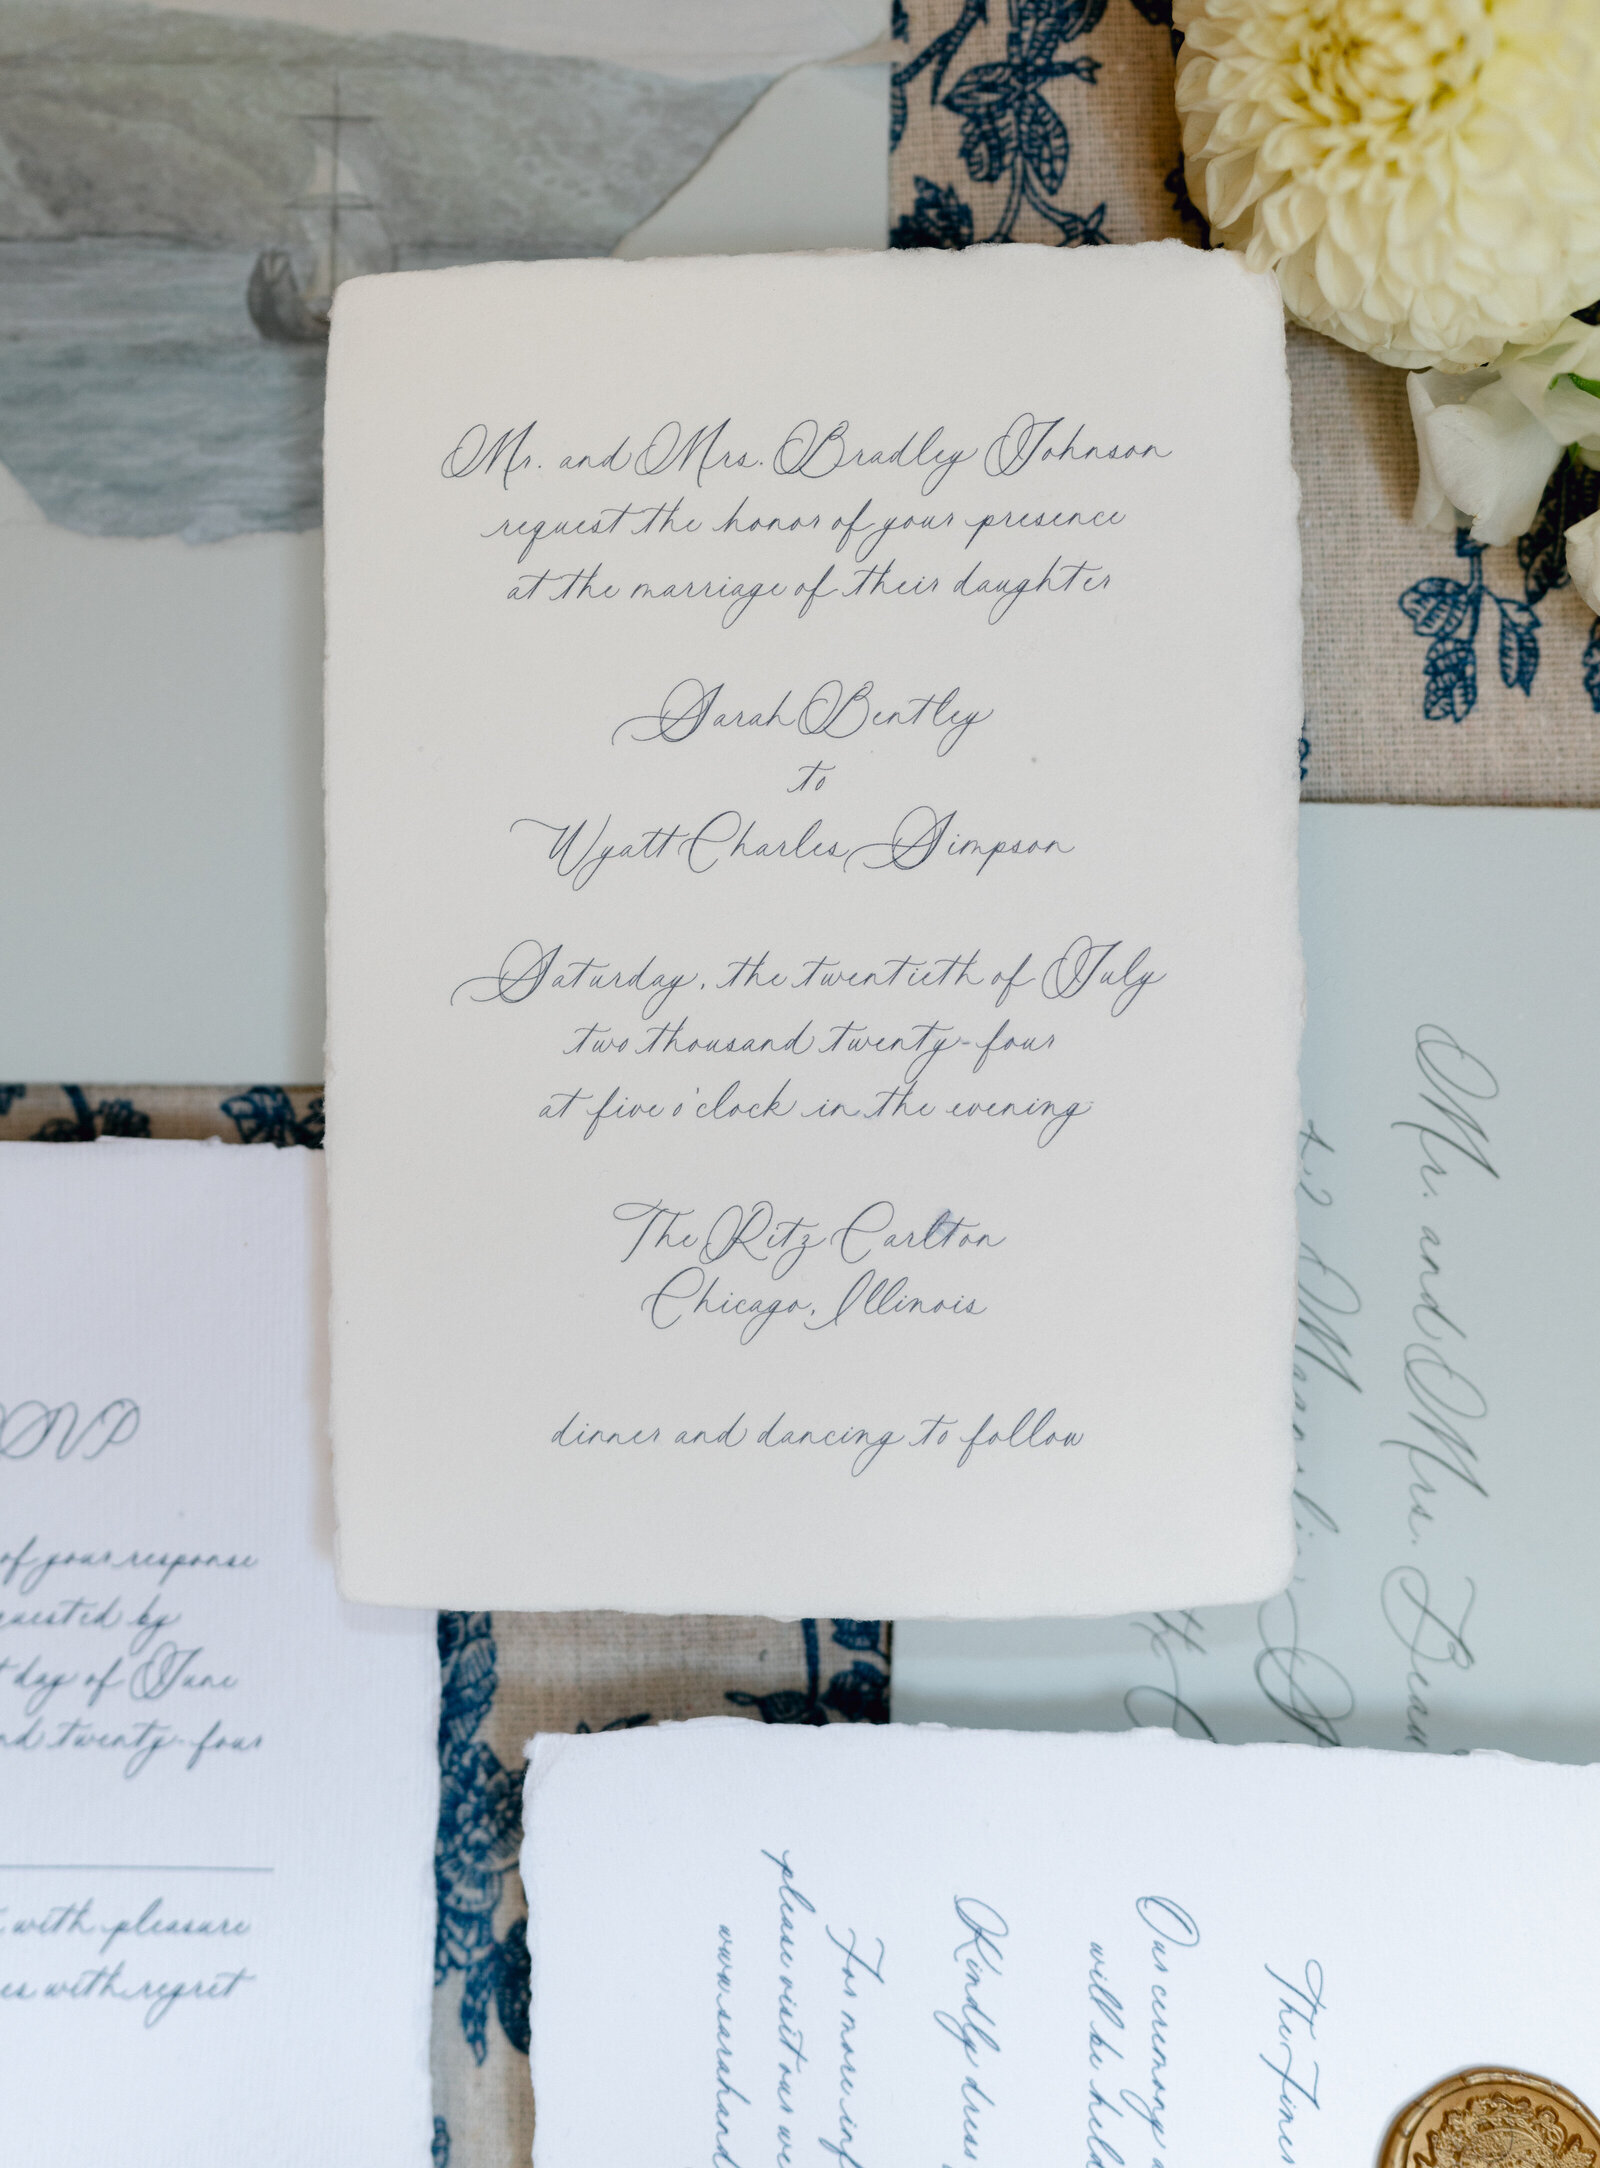 Mr. and Mrs. Bradley Johnson
request the honor of your presence
at the marriage of their daughter
Sarah Bentley
to
Wyatt Charles Simpson
Saturday, the twentieth of July
two thousand twenty-four
at five o'clock in the evening
The Ritz Carlton
Chicago, Illinois
dinner and dancing to follow
Mr. and Mrs.
42
of your response
by
day of June
twenty-four
with pleasure
with regret
The Finer
Our ceremony
will be held
Kindly dress
For more inf
please visit our we
www.sarahand